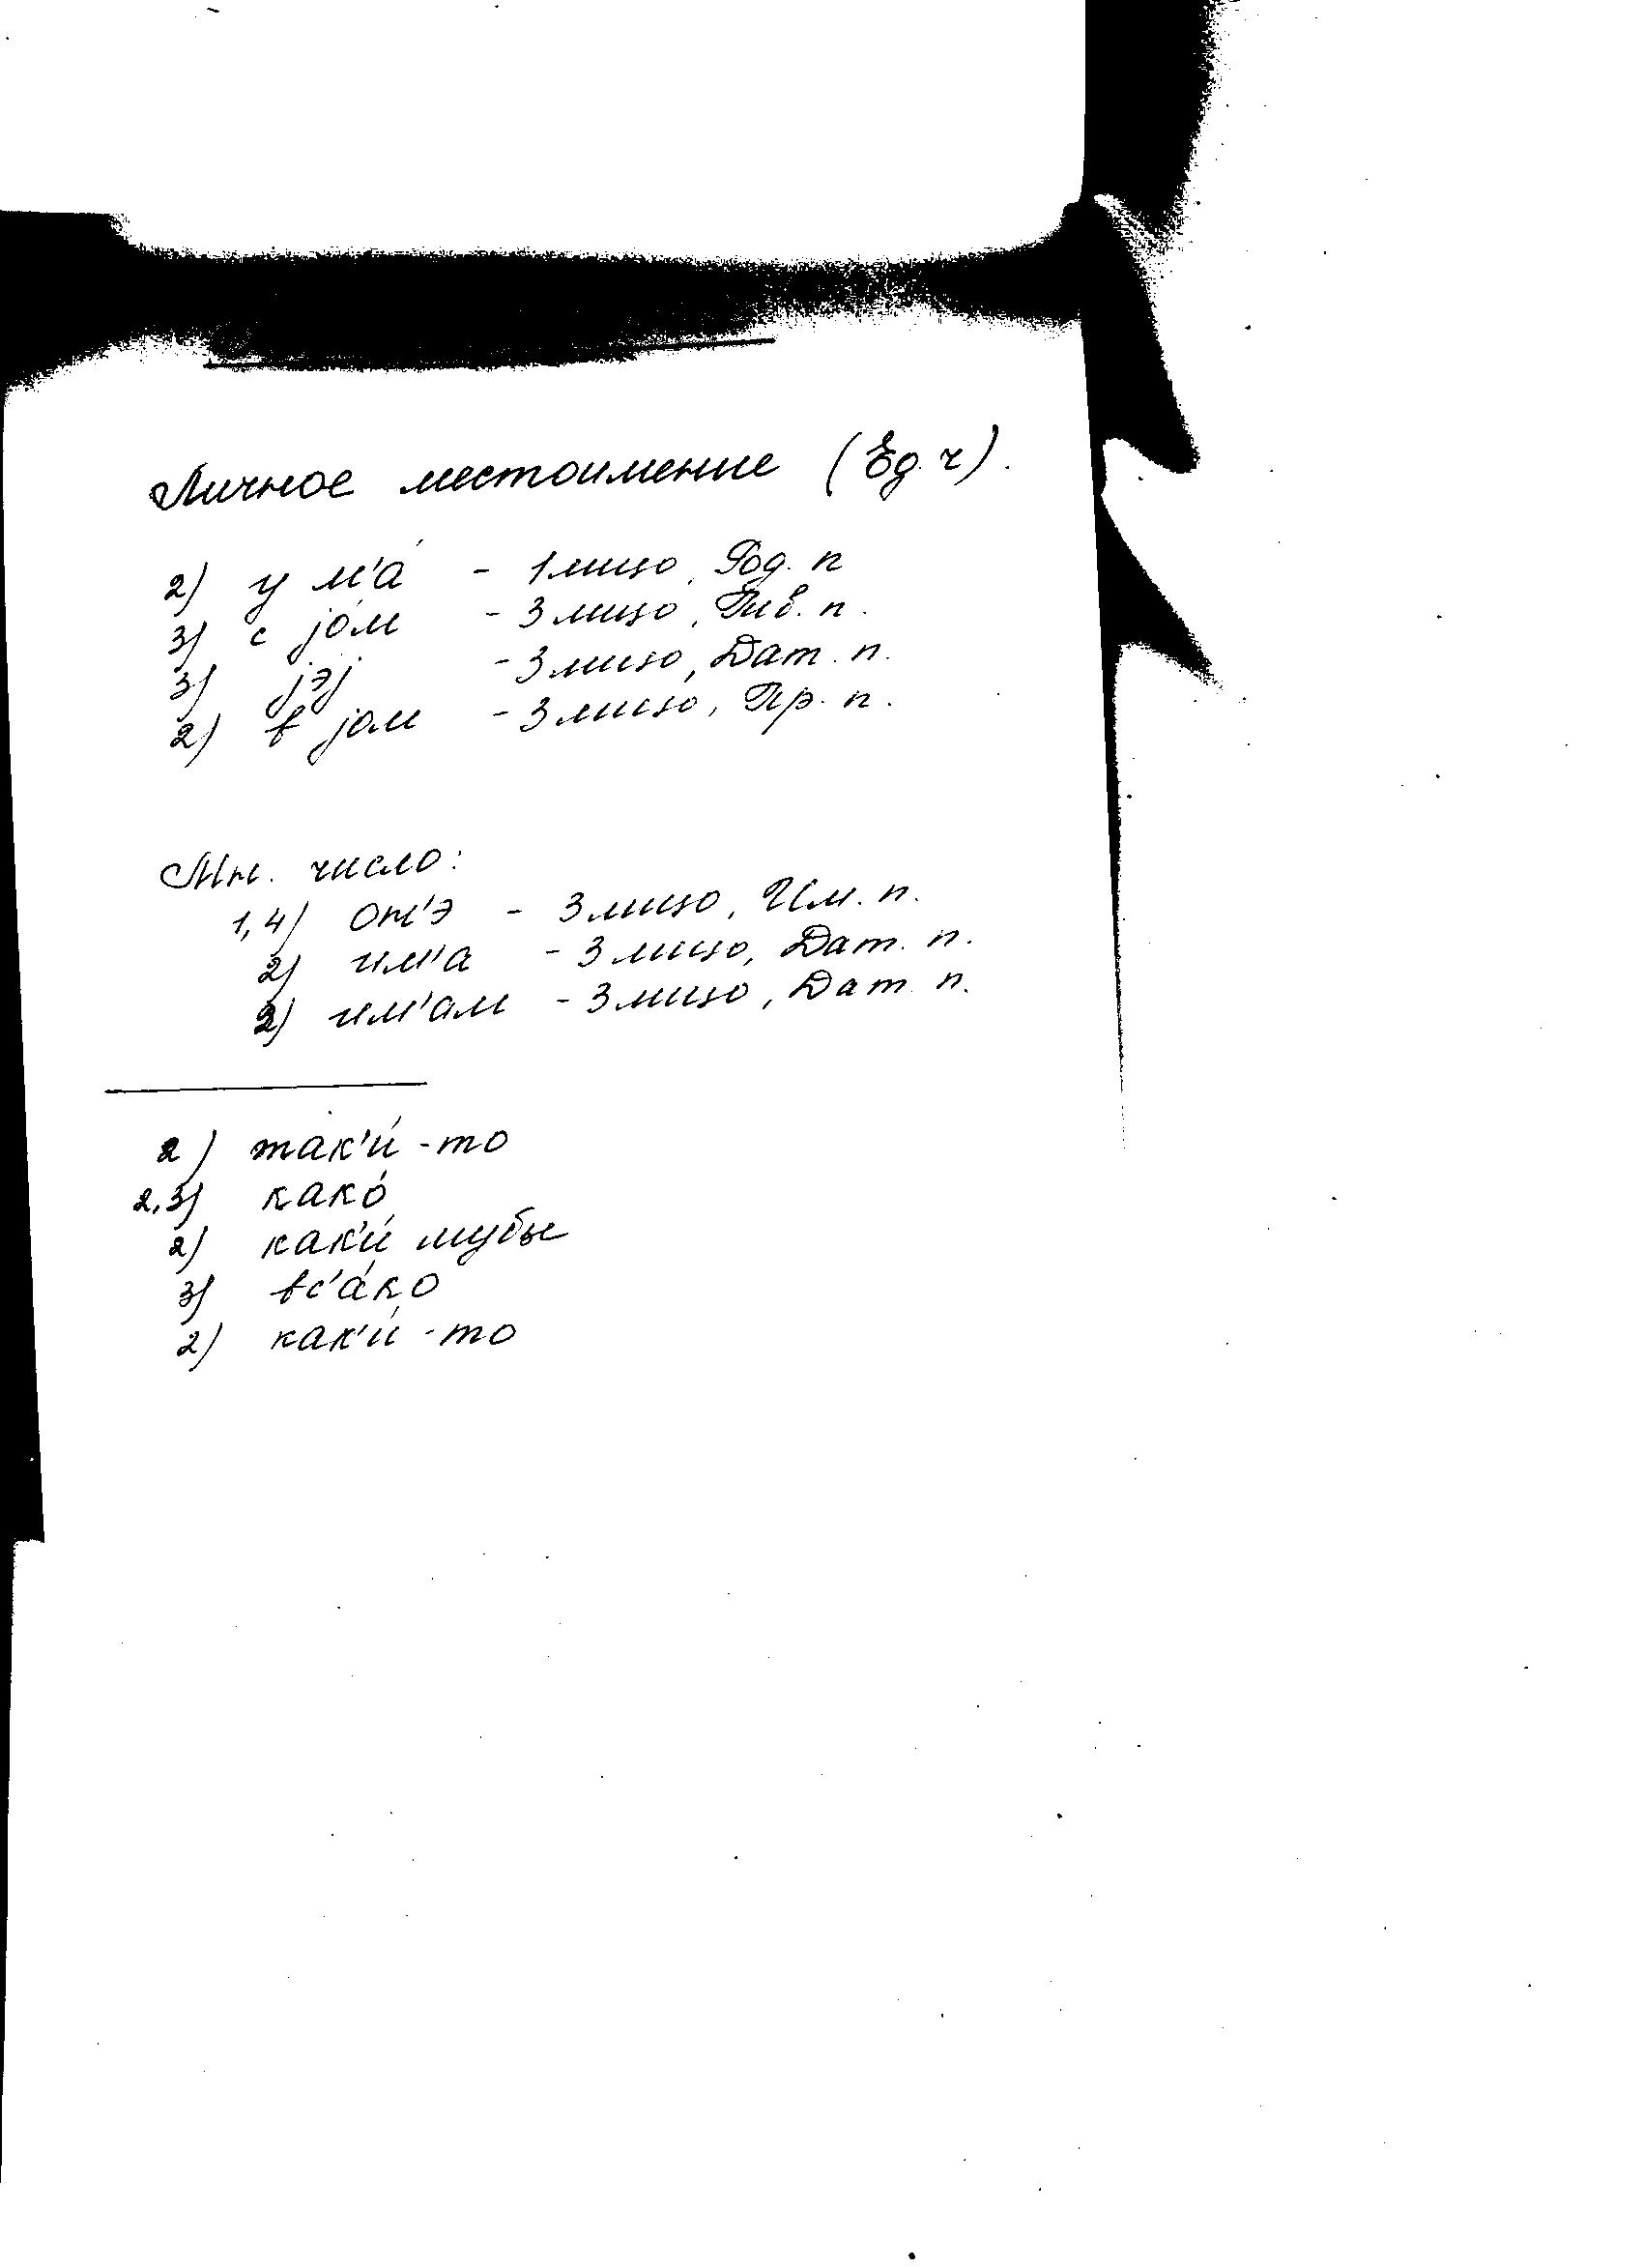 Личное местоимение (Ед. ч).
2) у м'а́ - 1 лицо, Род. п
3) с jо́м - 3 лицо, Тв. п.
3) jэj - 3 лицо, Дат. п.
2) в jом - 3 лицо, Пр. п.
Мн. число:
1,4) он'э - 3 лицо, Им. п.
2) им'а - 3 лицо, Дат. п.
2) им'ам - 3 лицо, Дат. п.
2) так'и́-то
2,3) како́
2) как'и́ мубы
3) вс'а́ко
2) как'и́-то